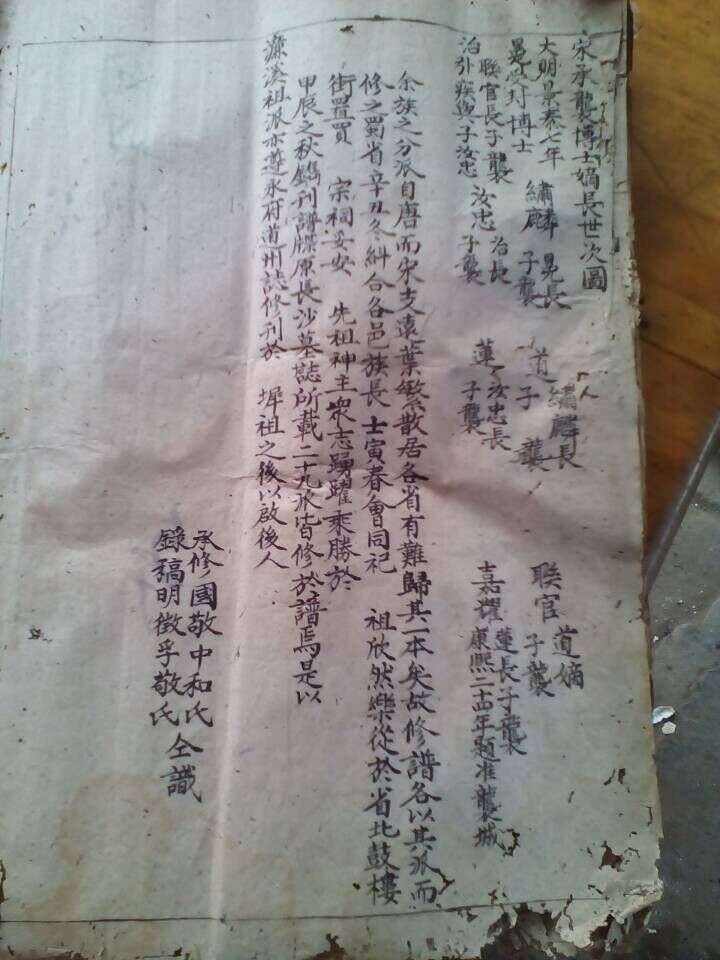 宋承襲博士嫡長世次圖
大明景泰七年 繡麟 晃長子襲 道 繡麟長子襲 聯官 道嫡子襲
晃 授封博士
聯官長子襲 汝忠 治長子襲 蓮 汝忠長子襲 嘉耀 蓮長子襲 康熙二十四年題准襲城
治引疾與子汝忠
余族之分派自唐而宋支遠葉繁散居各省有難歸其一本矣故修譜各以其派而
修之蜀省辛丑冬糾合各邑族長 士寅春會同祀 祖欣然樂從於省北鼓樓
街置買 宗祠妥安 先祖神主眾志踴躍乘勝於
甲辰之秋鐫刊譜牒原長沙墓誌所載二十九派皆修於譜焉是以
濂溪祖派亦遵永府道州誌修刊於 墀祖之後以啟後人
承修國敬中和氏
錄稿明徵孚敬氏 仝識